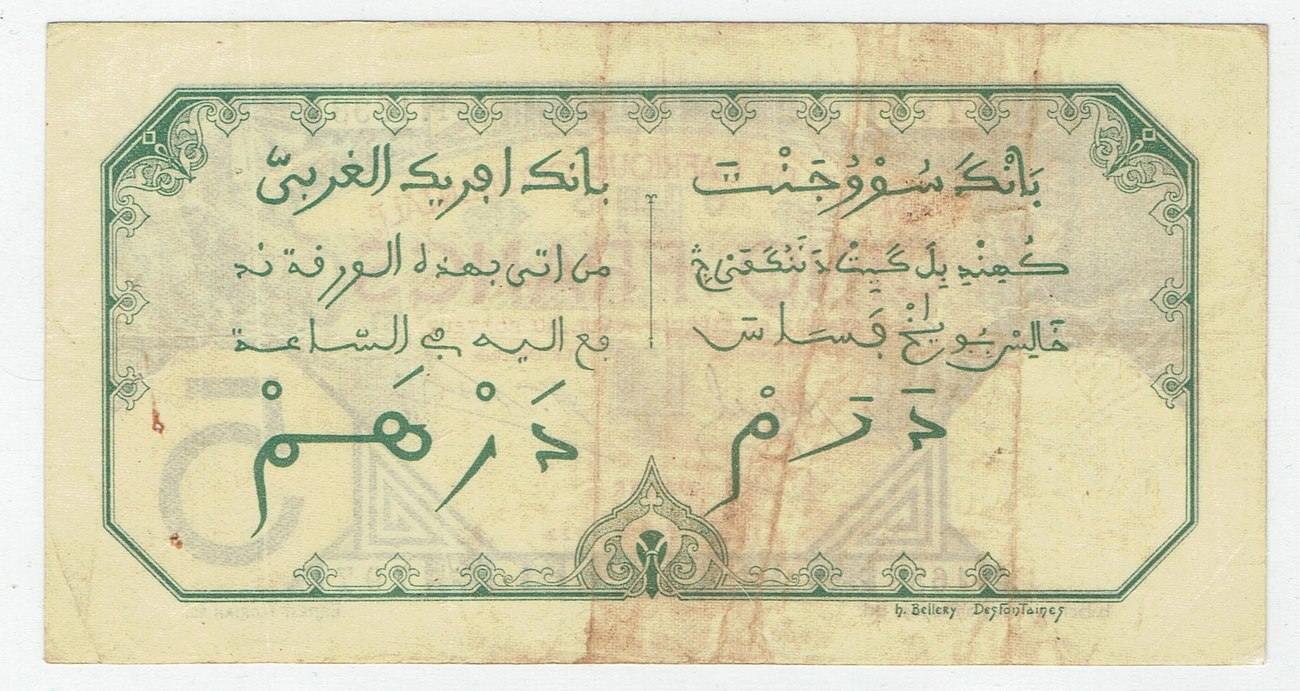 بَانْكَ سُوْوُجَنْتَ
كُهِنْدِ بِلَ كَيِتْ
خَالِسْ
دَرَمْ
بانك افريك الغربيّ
من اتى بهذه الورقة ند
فع اليه في السّاعة
دَرْهَمْ
h. Bellery Desfontaines